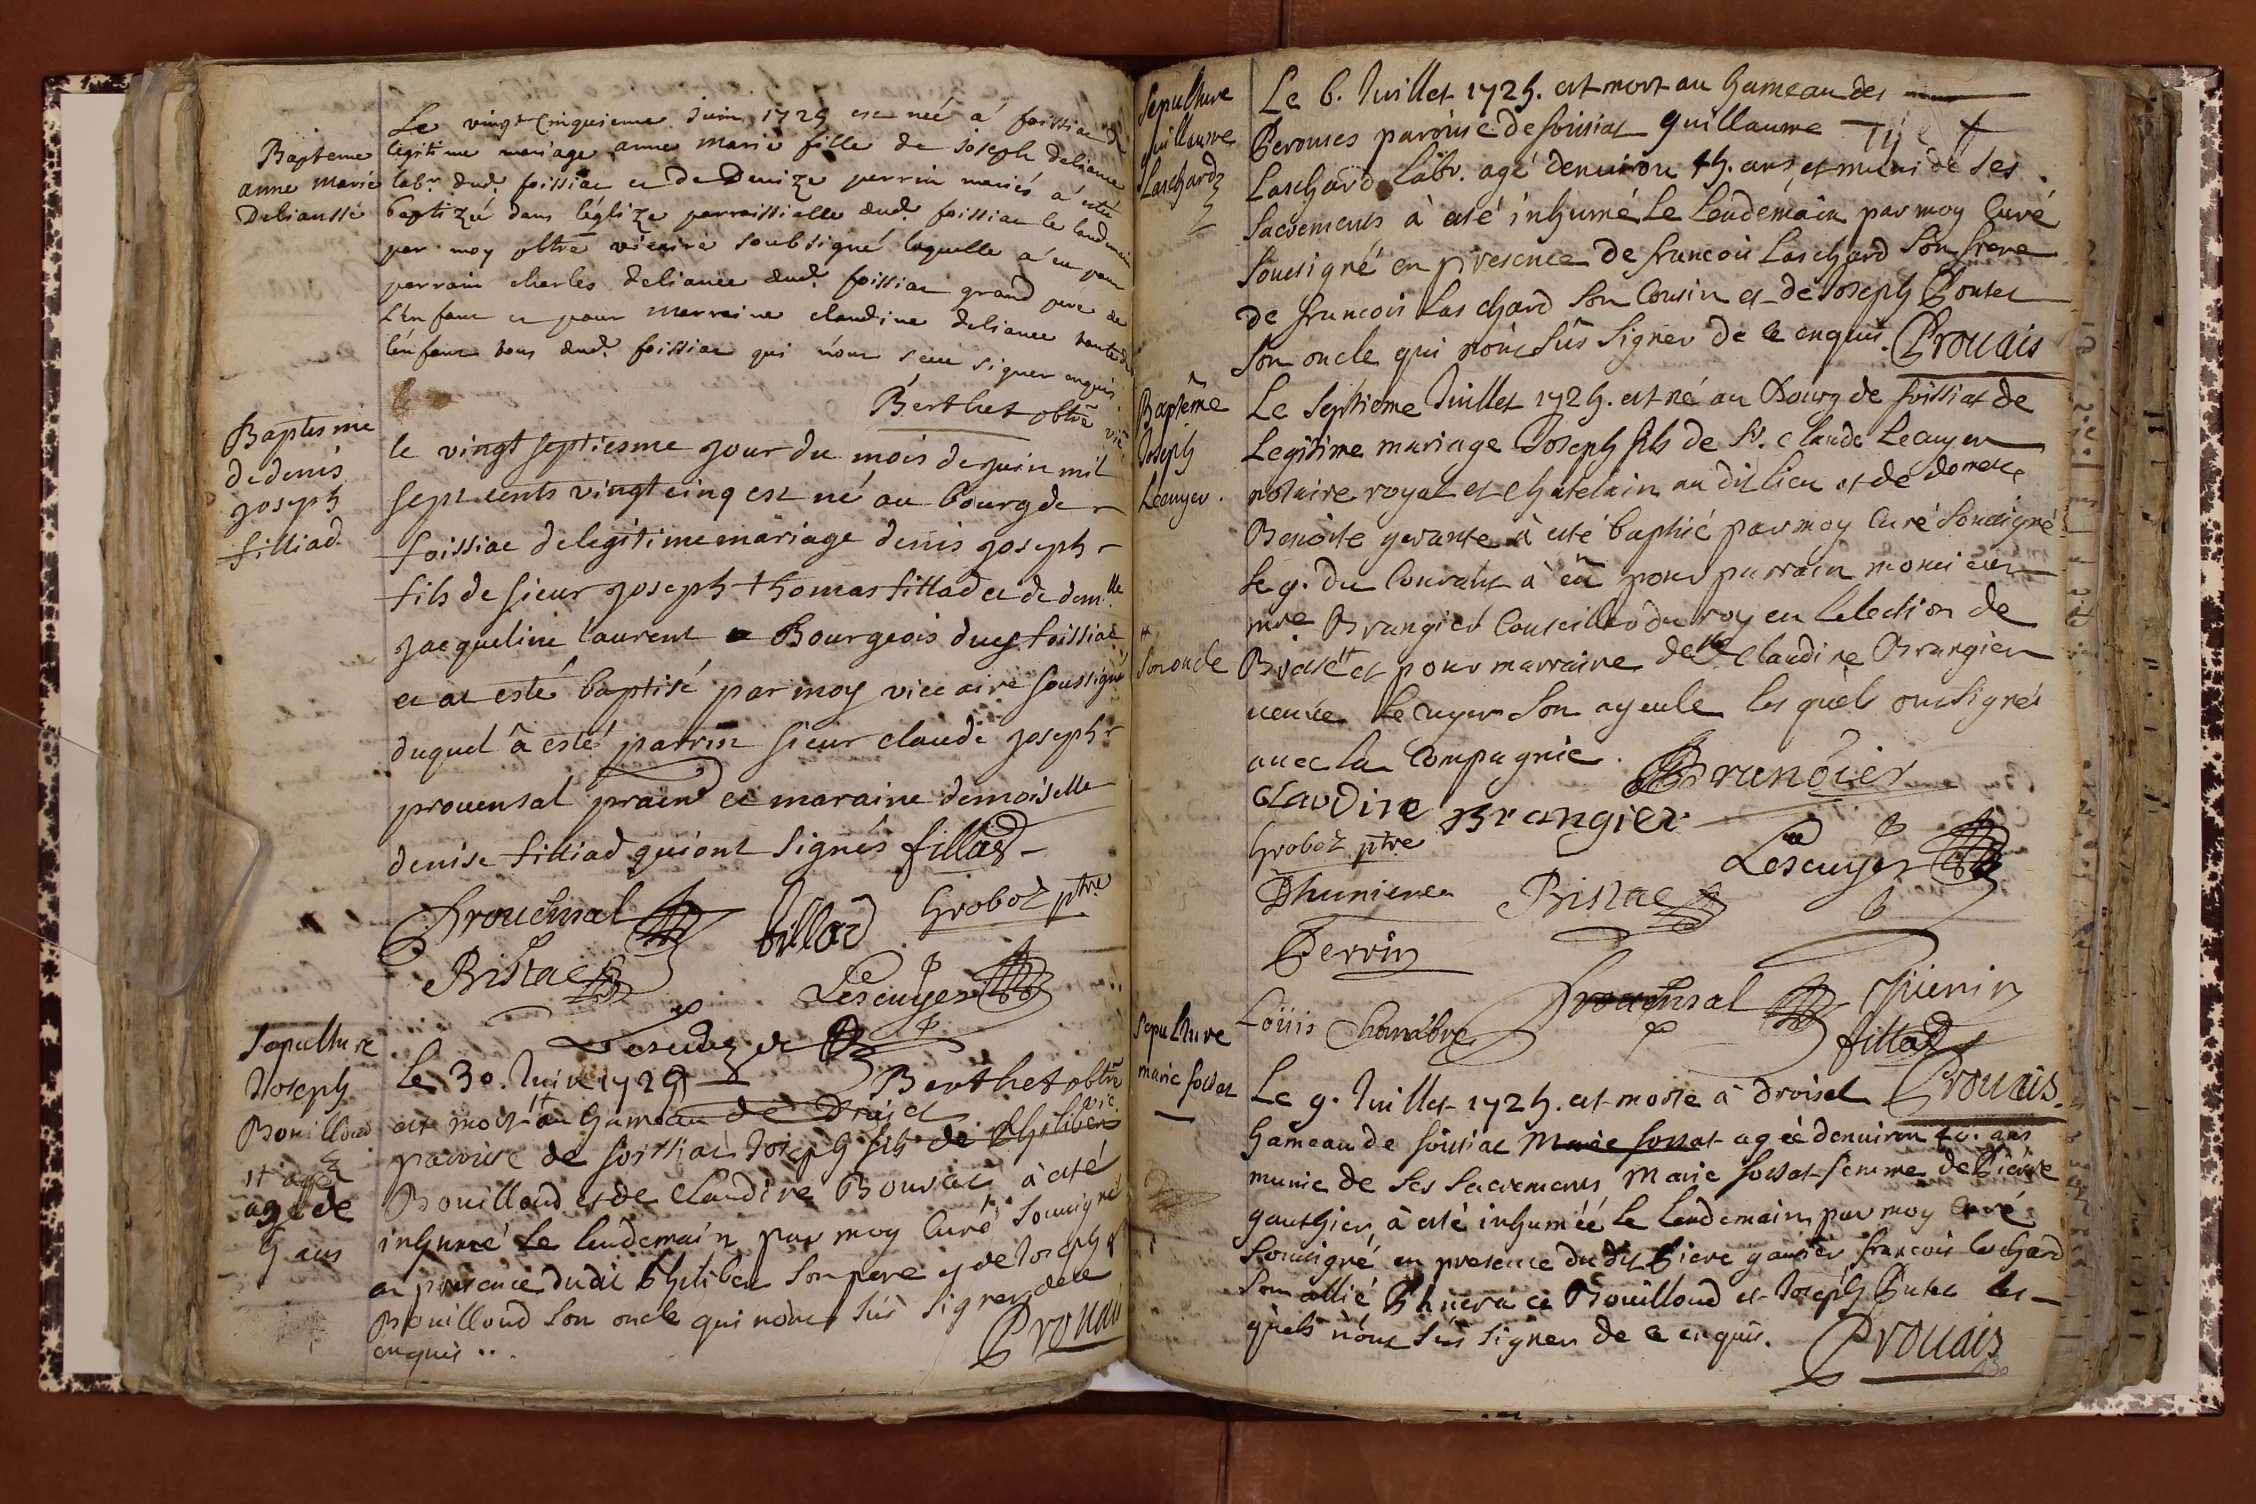 Bapteme
anne marie
Deliansse
Le vingt cinquieme Juin 1725 est neé a foissia de
legitime mariage anne marie fille de joseph deliance
labr. dud. foissiac et de Denize perrin mariés a été
baptizeé dans l'églize parroissialle dud. foissiac le landemain
par moy vicaire soubsigné laquelle a eu pour
parrain charles deliance dud. foissiac grand pere de
l'enfant et pour marraine claudine deliance tante de
l'enfant tous dud. foissiac qui n'ont sceu signer enquis.
Berthet
Baptesme
de denis
joseph
filliad
le vingt septiesme jour du mois de juin mil
sept cents vingt cinq est né au bourg de
foissiac de legitime mariage denis joseph
fils de sieur joseph thomas filliad et de demlle
jacqueline laurent Bourgeois foissiac
et a esté baptisé par moy viccaire soussigné
duquel â esté parrin sieur claude joseph
prouensal et maraine demoiselle
denise filliad qui ont signés fillad
Prouensal fillad Groboz ptre
Bistac Lescuyer
Berthet
Sepulture
Joseph
Bouilloud
agé de
5 ans
Le 30. Juin 1725
est mort au hameau de Droiset
paroisse de foissiac Joseph fils de Philibert
Bouilloud et de Claudine Bouvat à eté
inhumé le lendemain par moy Curé soussigné
en presence dudit Philibert son pere et de Joseph
Bouilloud son oncle qui n'ont sus signer de ce
enquis..
Prouais
Sepulture
guillaume
Laschard
Le 6. Juillet 1725. est mort au hameau des
Perouses paroisse de foissiat guillaume
Laschard labr. agé denuiron 45. ans, et muni de ses
sacrements à eté inhumé le lendemain par moy Curé
soussigné en presence de francois Laschard son frere
de francois Laschard son Cousin et de Joseph Poutet
son oncle qui n'ont sus signer de ce enquis. Prouais
Baptême
Joseph
Lecuyer.
Le Septieme Juillet 1725. est né au Bourg de foissiat de
Legitime mariage Joseph fils de Sr. claude Lecuyer
notaire royal et chatelain au dit lieu et de
Benoite à eté baptisé par moy Curé soussigné
le 9. du Courant à eû pour parrain monsieur
mre Brangier Conseiller du roy en l'election de
son oncle
et pour marraine delle Claudine Brangier
veuve Lecuyer son ayeule les quels ont signés
avec la Compagnie. Brangier
CLavDine Brangier
Groboz ptre Lescuyer
Bistac
Perrin
Louis Chambre Prouensal Guenin
fillad
Prouais
Sepulture
marie fossat
Le 9. Juillet 1725. est morte à Droiset
hameau de foissiac agée denuiron 40. ans
munie de ses sacrements Marie fossat femme de Pierre
gauthier, à eté inhumée le lendemain par moy Curé
soussigné en presence dudit Piere gautier francois laschard
son allié Bouilloud et Joseph Putet les
quels n'ont sus signer de ce enquis. Prouais